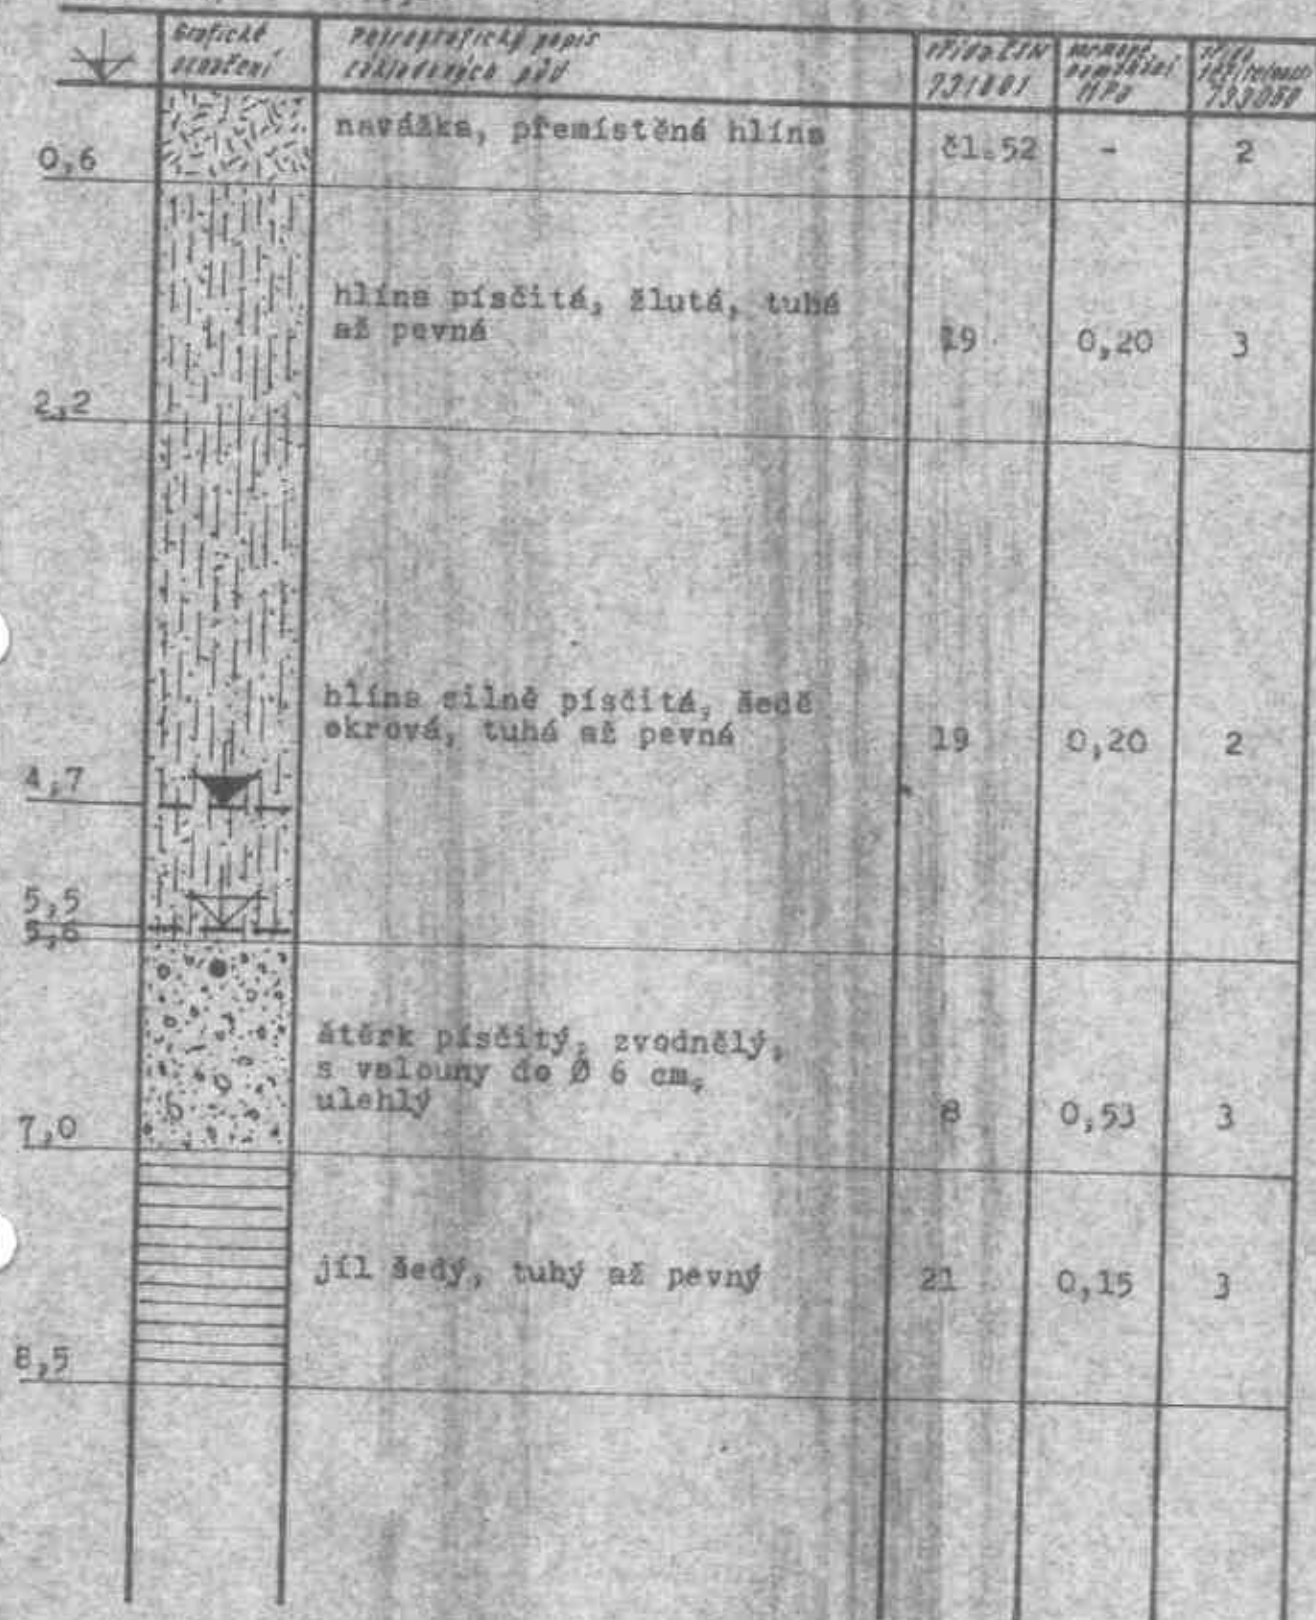 Grafické
označení
Petrografický popis
základových půd
třída ČSN
731001
normové
namáhání
MPa
třída
těžitelnosti
733050
navážka, přemístěná hlína
0,6
čl.52
-
2
hlína písčitá, žlutá, tuhá
až pevná
19
0,20
3
2,2
hlína silně písčitá, šedě
okrová, tuhá až pevná
19
0,20
2
4,7
5,5
5,6
štěrk písčitý, zvodnělý,
s valouny do Ø 6 cm,
ulehlý
8
0,53
3
7,0
jíl šedý, tuhý až pevný
21
0,15
3
8,5